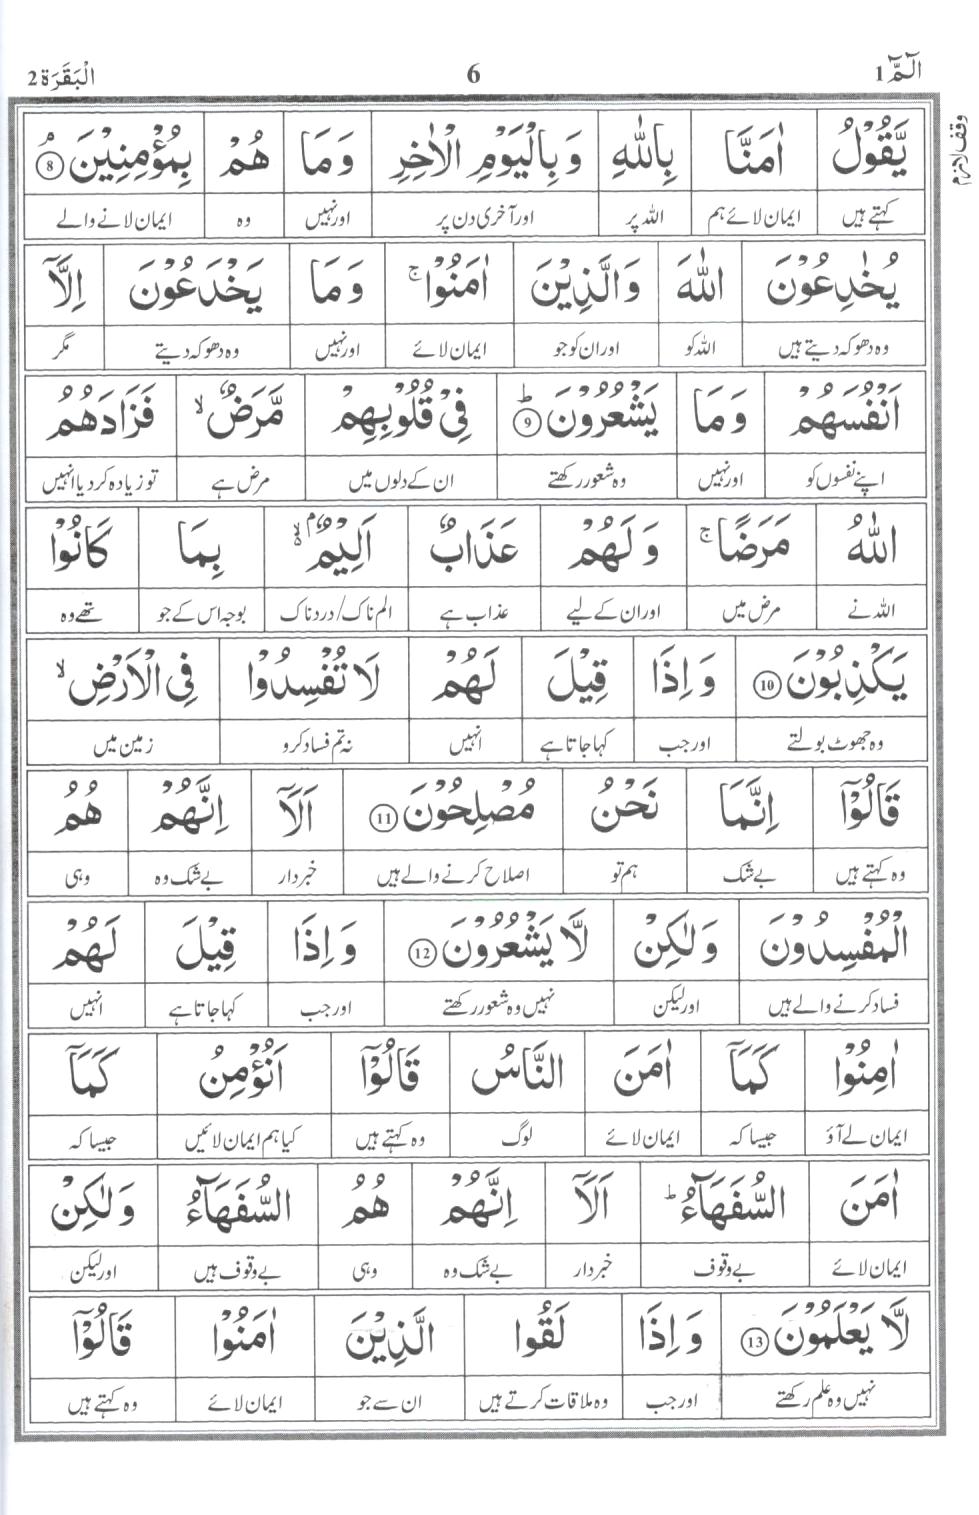 الٓمّٓ 1
6
الْبَقَرَة 2
وقف لازم
يَّقُوْلُ اٰمَنَّا بِاللّٰهِ وَ بِالْيَوْمِ الْاٰخِرِ وَ مَا هُمْ بِمُؤْمِنِيْنَ ۘ 8
کہتے ہیں ایمان لائے ہم اللہ پر اور آخری دن پر اور نہیں وہ ایمان لانے والے
يُخٰدِعُوْنَ اللّٰهَ وَ الَّذِيْنَ اٰمَنُوْا ۚ وَ مَا يَخْدَعُوْنَ اِلَّاۤ
وہ دھوکہ دیتے ہیں اللہ کو اور ان کو جو ایمان لائے اور نہیں وہ دھوکہ دیتے مگر
اَنْفُسَهُمْ وَ مَا يَشْعُرُوْنَ ؕ 9 فِيْ قُلُوْبِهِمْ مَّرَضٌ ۙ فَزَادَهُمُ
اپنے نفسوں کو اور نہیں وہ شعور رکھتے ان کے دلوں میں مرض ہے تو زیادہ کر دیا انہیں
اللّٰهُ مَرَضًا ۚ وَ لَهُمْ عَذَابٌ اَلِيْمٌۢ ۙ۬ بِمَا كَانُوْا
اللہ نے مرض میں اور ان کے لیے عذاب ہے الم ناک/دردناک بوجہ اس کے جو تھے وہ
يَكْذِبُوْنَ 10 وَ اِذَا قِيْلَ لَهُمْ لَا تُفْسِدُوْا فِي الْاَرْضِ ۙ
وہ جھوٹ بولتے اور جب کہا جاتا ہے انہیں نہ تم فساد کرو زمین میں
قَالُوْۤا اِنَّمَا نَحْنُ مُصْلِحُوْنَ 11 اَلَاۤ اِنَّهُمْ هُمُ
وہ کہتے ہیں بے شک ہم تو اصلاح کرنے والے ہیں خبردار بے شک وہ وہی
الْمُفْسِدُوْنَ وَ لٰكِنْ لَّا يَشْعُرُوْنَ 12 وَ اِذَا قِيْلَ لَهُمْ
فساد کرنے والے ہیں اور لیکن نہیں وہ شعور رکھتے اور جب کہا جاتا ہے انہیں
اٰمِنُوْا كَمَاۤ اٰمَنَ النَّاسُ قَالُوْۤا اَنُؤْمِنُ كَمَاۤ
ایمان لے آؤ جیسا کہ ایمان لائے لوگ وہ کہتے ہیں کیا ہم ایمان لائیں جیسا کہ
اٰمَنَ السُّفَهَآءُ ؕ اَلَاۤ اِنَّهُمْ هُمُ السُّفَهَآءُ وَ لٰكِنْ
ایمان لائے بے وقوف خبردار بے شک وہ وہی بے وقوف ہیں اور لیکن
لَّا يَعْلَمُوْنَ 13 وَ اِذَا لَقُوا الَّذِيْنَ اٰمَنُوْا قَالُوْۤا
نہیں وہ علم رکھتے اور جب وہ ملاقات کرتے ہیں ان سے جو ایمان لائے وہ کہتے ہیں